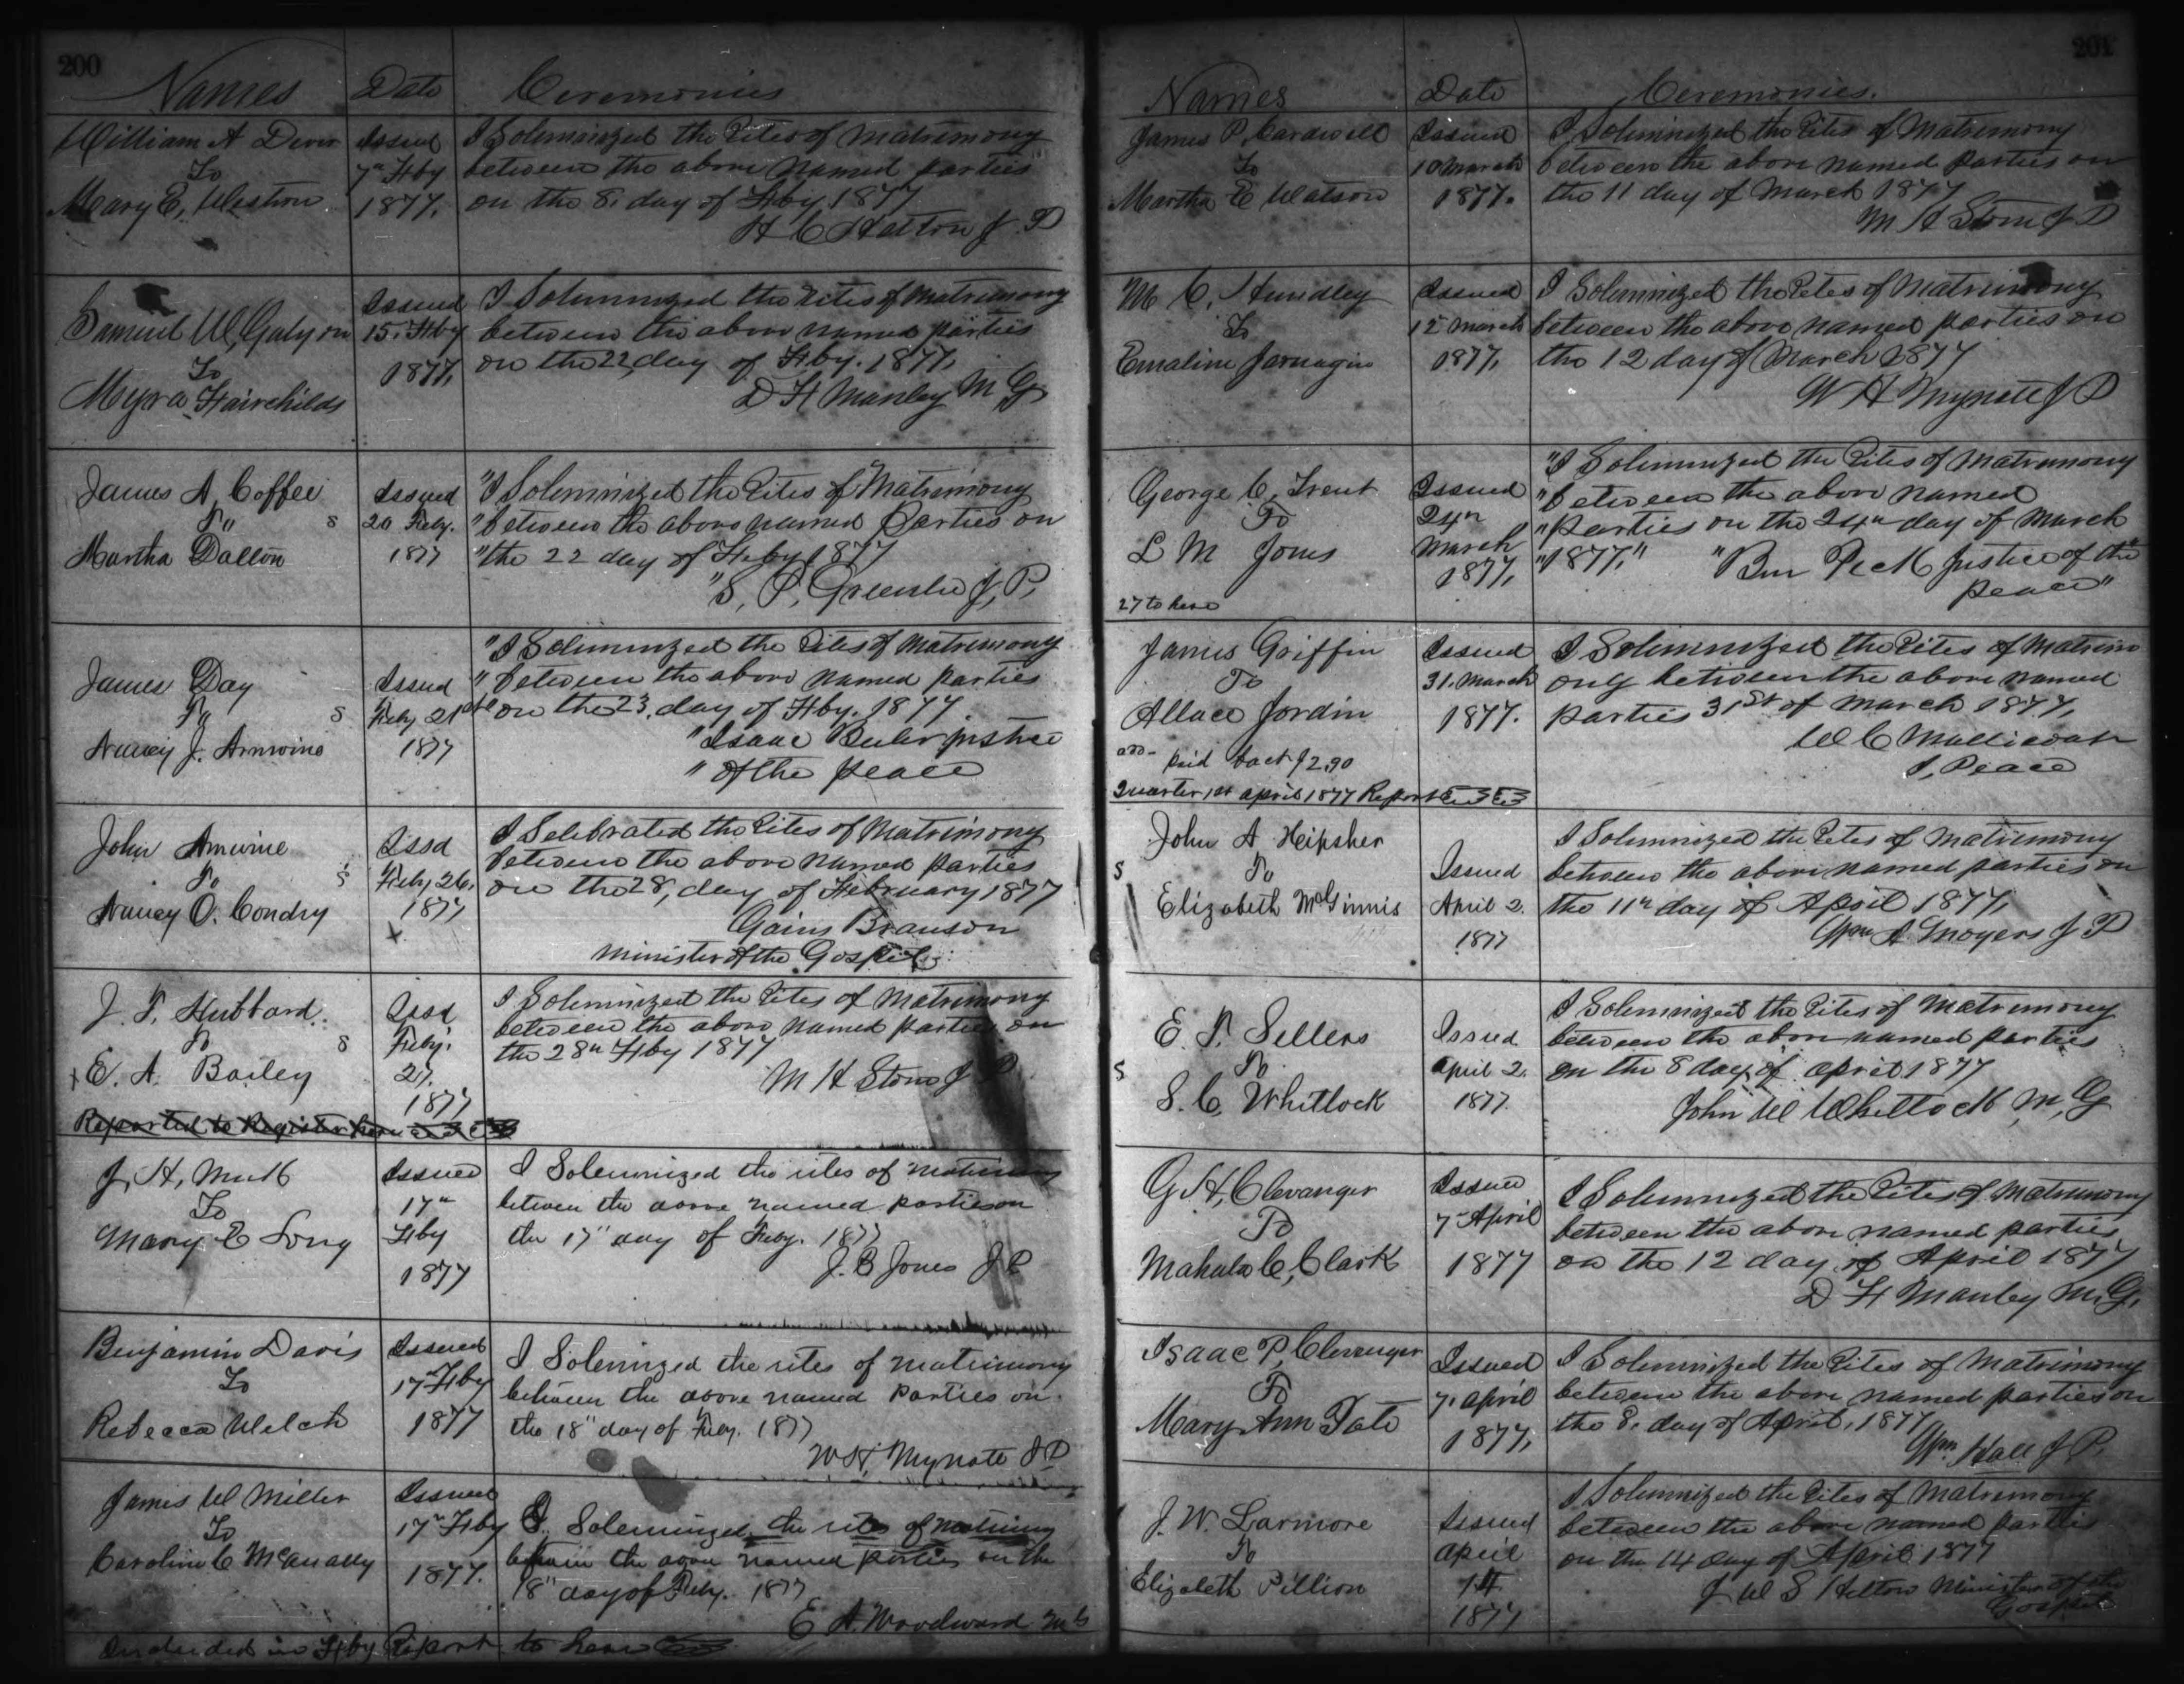 200
Names Date Ceremonies
William A Dever Issued I Solemnized the Rites of Matrimony
To 7th Feby between the above named parties
Mary E, Weston 1877. on the 8. day of Feby 1877
H C Helton J. P
Issued I Solemnized the Rites of Matrimony
Samuel W, Galyon 15. Feby between the above named parties
To 1877, on the 22, day of Feby. 1877,
Myra Fairchilds D H Manley M G
James A, Coffee Issued "I Solemnized the Rites of Matrimony
To s 20 Feby. "between the above named Parties on
Martha Dalton 1877 "the 22 day of Feby 1877
"S, P, Greenlee J, P,
"I Solemnized the Rites of Matrimony
James Day Issued "between the above named parties
To s Feby 21st "on the 23, day of Feby. 1877.
Nancy J. Arnwine 1877 "Isaac Beeler justice
"of the peace
John Arnwine Issd I Selebrated the Rites of Matrimony
To s Feby 26, between the above named parties
Nancy O. Condry 1877 on the 28, day of February 1877
x Gains Branson
Minister of the Gospel
J. T. Hubbard. Issd I Solemnized the Rites of Matrimony
To s Feby. between the above named parties on
x E. A. Bailey 27. the 28th Feby 1877
1877 M H Stone J P
Reported to Register here
J, H, Issued I Solemnized the rites of matrimony
To 17th between the above named parties on
Mary E Long Feby the 17" day of Feby. 1877
1877 J. B Jones J P
Benjamin Davis Issued I Solemnized the rites of matrimony
To 17th Feby between the above named parties on
Rebecca Welch 1877 the 18" day of Feby. 1877
W H, Mynatt J P
James W Miller Issued
To 17th Feby I Solemnized the rites of matrimony
Caroline C McAnally 1877. between the above named parties on the
18" day of Feby. 1877
E A Woodward M G
Included in Feby Report to here
201
Names Date Ceremonies.
James P, Cardwell Issued I Solemnized the Rites of Matrimony
To 10 March between the above named parties on
Martha E Watson 1877. the 11 day of March 1877
M H Stone J P
M C, Hundley Issued I Solemnized the Rites of Matrimony
To 12 March between the above named parties on
Emaline Jarnagin 1877, the 12 day of March 1877
W H Mynatt J P
"I Solemnized the Rites of Matrimony
George C, Trent Issued "between the above named
To 24th "parties on the 24th day of March
L M Jones March "1877," "Ben Peck Justice of the
1877, peace"
27 to here
James Griffin Issued I Solemnized the Rites of Matrim
To 31. March ony between the above named
Allace Jordin 1877. parties 31st of March 1877,
W C
paid back $2.90 J, Peace
Quarter 1st april 1877 Report
John A Heipsher I Solemnized the Rites of Matrimony
s To Issued between the above named parties on
Elizabeth McGinnis April 2. the 11th day of April 1877,
1877 Wm A Moyers J P
I Solemnized the Rites of Matrimony
E. T. Sellers Issued between the above named parties
s To April 2. on the 8 day of april 1877
S. C, Whitlock 1877. John W Whitlock M, G
G H, Clevanger Issued I Solemnized the Rites of Matrimony
To 7th April between the above named parties
Mahala C, Clark 1877 on the 12 day of April 1877
D H Manley M. G,
Isaac P, Clevenger Issued I Solemnized the Rites of Matrimony
To 7. April between the above named parties on
Mary Ann Tate 1877, the 8. day of April, 1877
Wm. Hall J P.
I Solemnized the Rites of Matrimony
J. W. Larmore Issued between the above named parties
To April on the 14 day of April 1877
Elizabeth Pillion 14 J W S Helton Minister of the
1877 Gospel